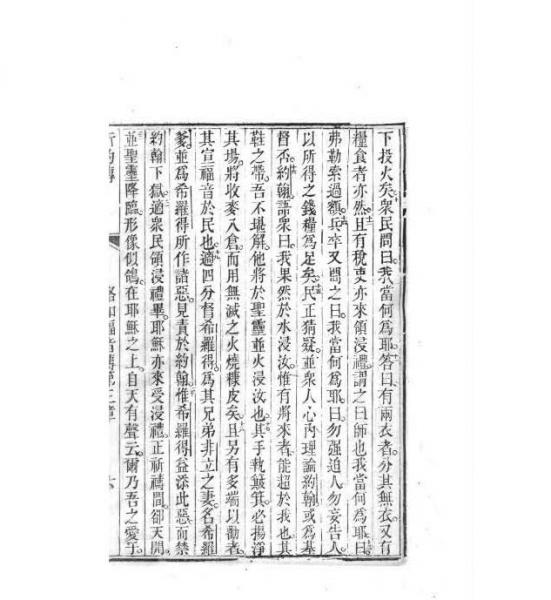 下投火矣衆民問曰我當何為耶答曰有兩衣者分其無衣又有
糧食者亦然且有稅吏亦來領浸禮謂之曰師也我當何為耶曰
弗勒索過額兵卒又問之曰我當何為耶曰勿强迫人勿妄告人
以所得之錢糧為足矣民正猜疑並衆人心內理論約翰或為基
督否約翰語衆曰我果然於水浸汝惟有將來者能超於我也其
鞋之帶吾不堪解他將於聖靈並火浸汝也其手執簸箕必揚淨
其場將收麥入倉而用無滅之火燒糠皮矣且另有多端以勸者
其宣福音於民也適四分督希羅得為其兄弟非立之妻名希羅
爹並為希羅得所作諸惡見責於約翰惟希羅得益添此惡而禁
約翰下獄適衆民領浸禮畢耶穌亦來受浸禮正祈禱間卻天開
並聖靈降臨形像似鴿在耶穌之上自天有聲云爾乃吾之愛子
路加福音傳第三章 六